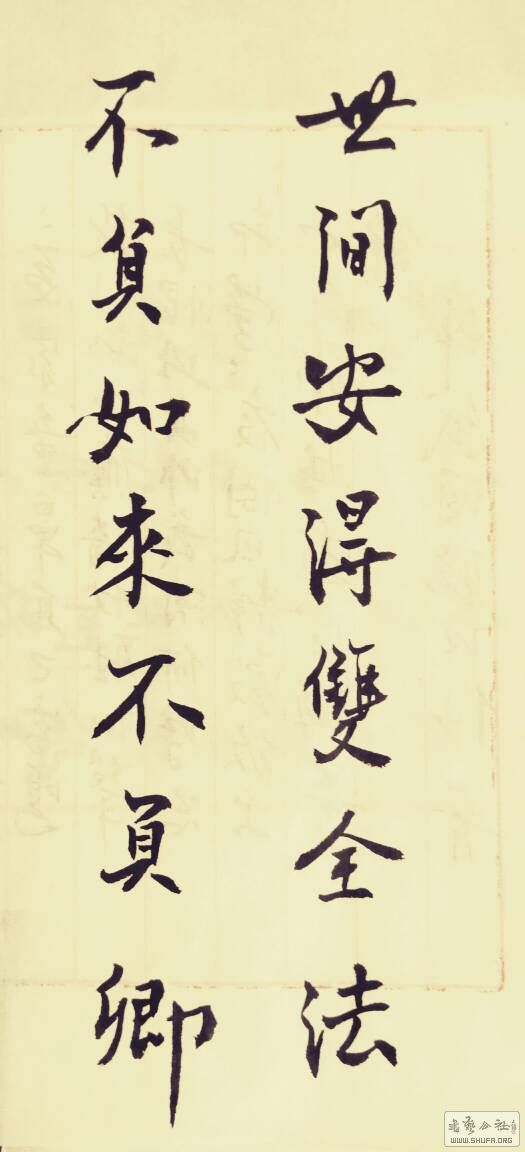 世间安得雙全法
不負如來不負卿
WWW.SHUFA.ORG